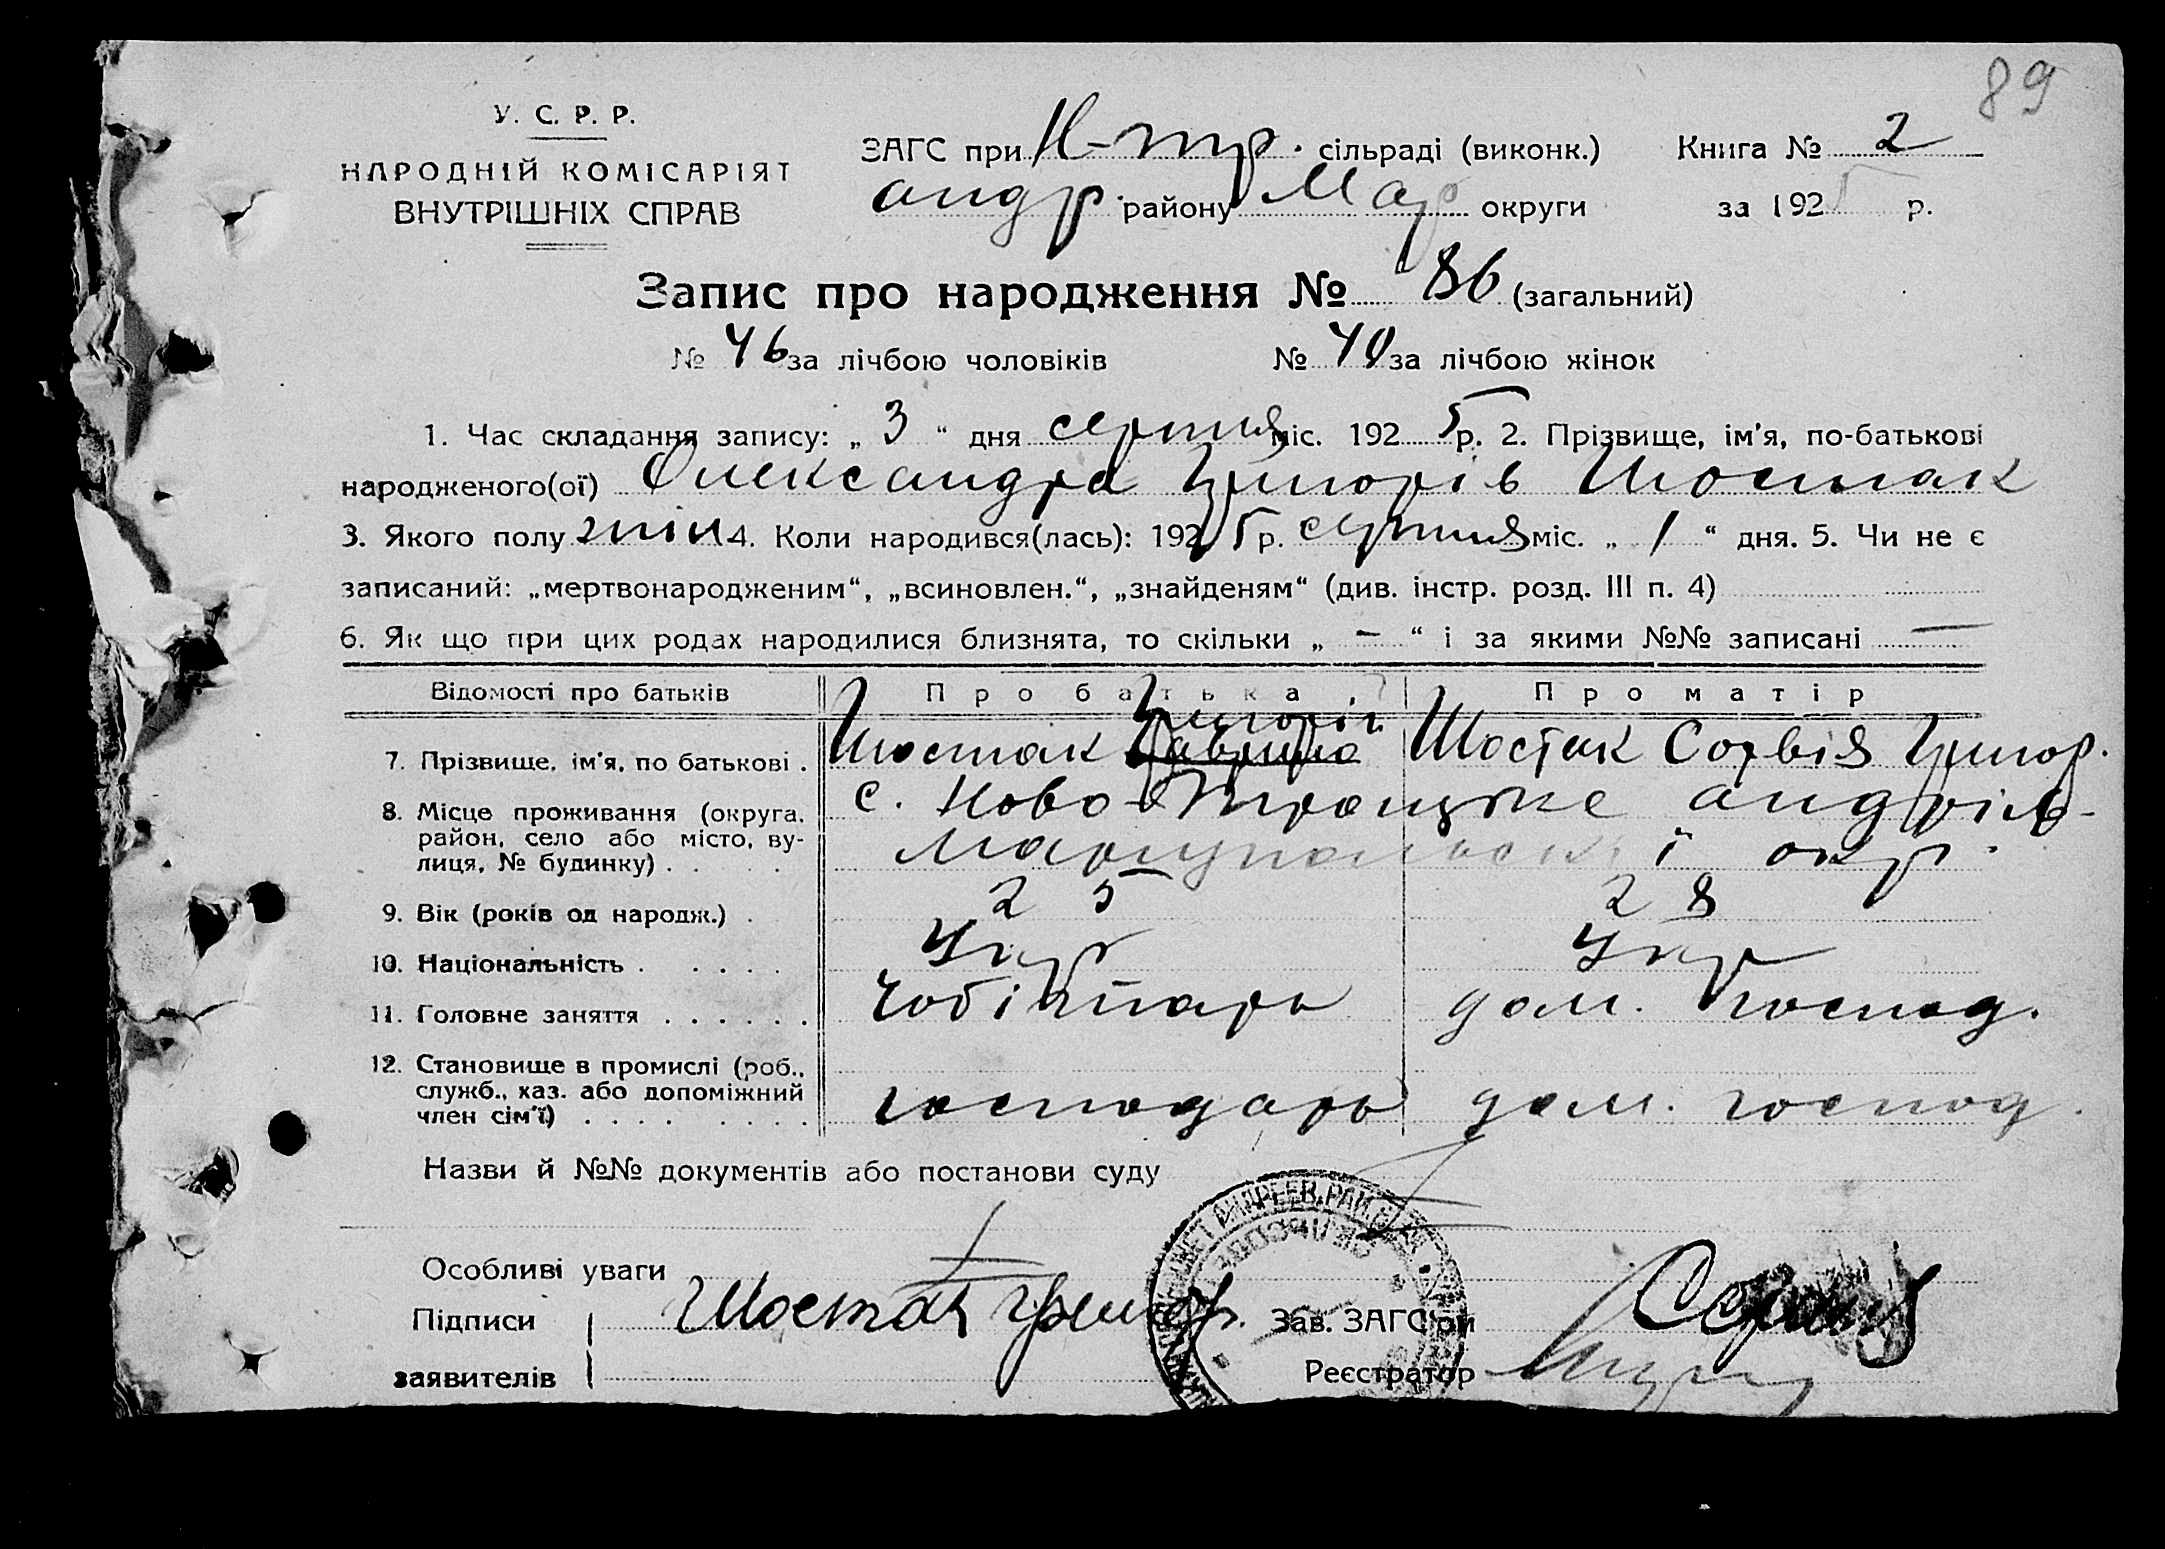 89
У. С. Р. Р.
НАРОДНІЙ КОМІСАРІЯТ
ВНУТРІШНІХ СПРАВ
ЗАГС при Н-тр. сільраді (виконк.) Книга № 2
андр. району Мар округи за 1925 р.
Запис про народження № 86 (загальний)
№ 46 за лічбою чоловіків № 40 за лічбою жінок
1. Час складання запису: „ 3 “ дня серпня міс. 1925 р. 2. Прізвище, ім'я, по-батькові
народженого(ої) Олександра Григорів Шостак
3. Якого полу жін 4. Коли народився(лась): 1925 р. серпня міс. „ 1 “ дня. 5. Чи не є
записаний: „мертвонародженим“, „всиновлен.“, „знайденям“ (див. інстр. розд. III п. 4)
6. Як що при цих родах народилися близнята, то скільки „ – “ і за якими №№ записані –
Відомості про батьків Про батька Про матір
Григорій
7. Прізвище, ім'я, по батькові . Шостак Гаврило Шостак Софвія Григор.
8. Місце проживання (округа, с. Ново-Троицьке андріів-
район, село або місто, ву-
лиця, № будинку) . . . . Маріупольської окр.
9. Вік (років од народж.) . 25 28
10. Національність . . . . . Укр Укр
11. Головне заняття . . . . . . Чобітарь дом. господ.
12. Становище в промислі (роб.,
служб., хаз. або допоміжний
член сім'ї) . . . . . . . . господарь дом. господ.
Назви й №№ документів або постанови суду
Особливі уваги
Підписи Шостак Григор. Зав. ЗАГС'ом
заявителів Реєстратор